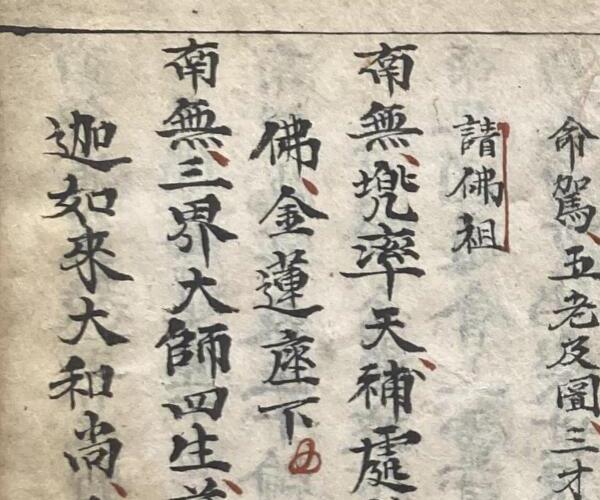 命駕五老及圖三才
請佛祖
南無兠率天補處
佛金蓮座下
南無三界大師四生
迦如來大和尚